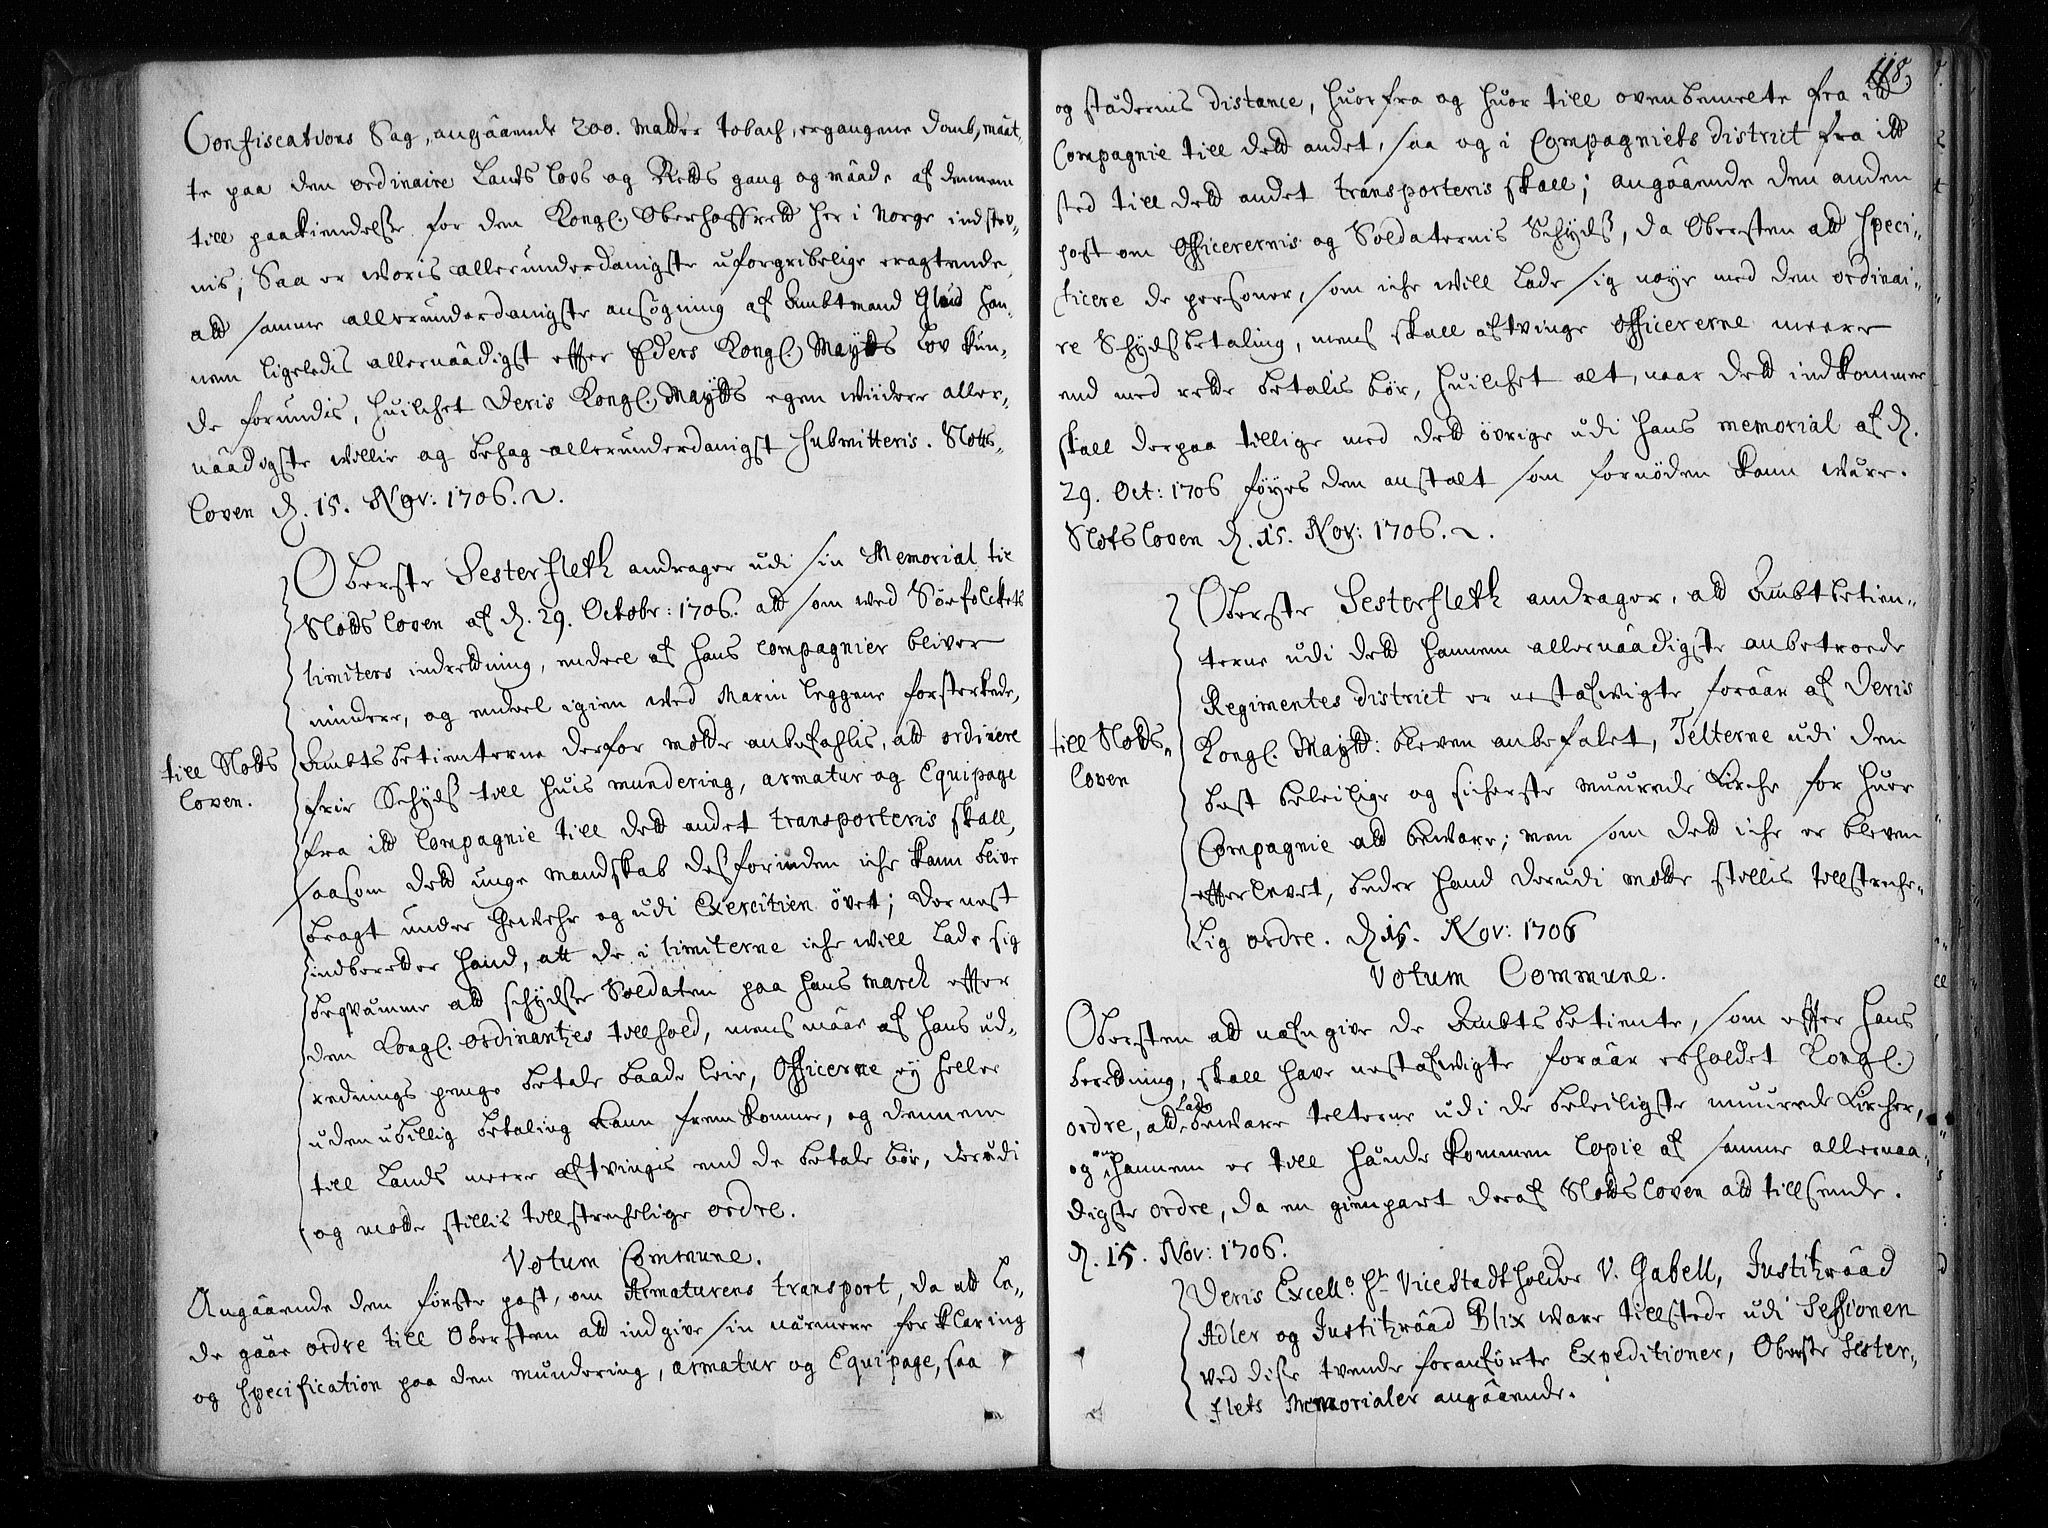 Confiscations Sag, angaaende 200. Matter tobach, ergangene domb, maat-
te paa den ordinaire Lands lovs og Retts gang og maade af dennem
till paakiendelse for den Kongl. Oberhoffrett her i Norge indstev-
nis; Saa er woris allerunderdanigste uforgribelige eragtende,
att samme allerunderdanigste ansøgning af Ambtmand Glud han-
nem ligeledis allernaadigst effter Eders Kongl. Maytts Lov kun-
de forundis, huilchet Deris Kongl. Maytts egen widere aller-
naadigste willie og behag allerunderdanigst submitteris. Slotts-
loven d. 15. Nov: 1706.
Oberste Sesterfleth andrager udi sin Memorial til
Slotts loven af d. 29. Octobr: 1706. att som ved Søefolckets
limiters indretning, endeel af hans compagnier bliver
mindre, og endeel igien ved Marin leggene forsterkede,
Ambtsbetienterne derfor motte anbefahlis, att ordinere
frie Schyds till huis mundering, armatur og Equipage
fra itt Compagnie till dett andet transporteris skall,
saasom dett unge mandskab desforinden iche kann blive
bragt under Gewehr og udi Exercitien øvet; Dernest
indberetter hand, att de i limiterne iche will lade sig
beqvämme att schydse Soldaten paa hans march effter
den Kongl. ordinantzes tollhold, mens maar af hans ud-
rednings penge betale baade leie, Officerne ey heller
uden ubillig betaling kann fremkomme, og dennem
till Lands meere aftvingis end de betale bør, derudi
og motte stillis tillstrechelige ordre.
till Slotts
loven.
Votum Commune.
Angaaende den første post, om Armaturens transport, da att la-
de gaar ordre till Obersten att indgive sin närmere forklaring
og Specification paa den mundering, armatur og Equipage, saa
118.
og städernis distance, huorfra og huor till ovenbemelte fra itt
Compagnie till dett andet, saa og i Compagniets district fra itt
sted till dett andet transporteris skall; angaaende den anden
post om Officerernis og Soldaternis Schyds, da Obersten att speci-
ficere de personer, som iche will lade sig nøye med den ordinai-
re Schydsbetaling, mens skall aftvinge Officererne meere
end med rette betalis bør, huilchet alt, naar dett indkommer
skall derpaa tillige med dett øvrige udi hans memorial af d.
29. Oct: 1706 føyes den anstalt som fornøden kann være.
Slotsloven d. 15. Nov: 1706.
Oberste Sesterfleth andrager, att Ambtbetien-
terne udi dett hannem allernaadigste anbetroede
Regimentes district er nestafvigte foraar af Deris
Kongl. Maytt: bleven anbefalet, Telterne udi den
best beleilige og sicherste muurede Kirche for huer
Compagnie att bevare; men som dett iche er bleven
effterlevet, beder hand derudi motte stillis tillstreche-
lig ordre. d 15. Nov: 1706
till Slotts-
loven
Votum Commune.
Obersten att nafngive de Ambtsbetiente, som effter hans
beretning, skall have nestafvigte foraar erholdet Kongl.
ordre, att lade bevare telterne udi de beleiligste muurede Kircher,
og om hannem er till hände kommen Copie af samme allernaa-
digste ordre, da en gienpart deraf Slottsloven att tillsende.
d. 15. Nov: 1706.
Deris Excell: Hr. Vicestadtholder V. Gabell, Justitzraad
Adler og Justitzraad Blix ware tillstede udi Sessionen
ved disse tvende foranførte Expeditioner, Oberste Sester-
flets Memorialer angaaende.